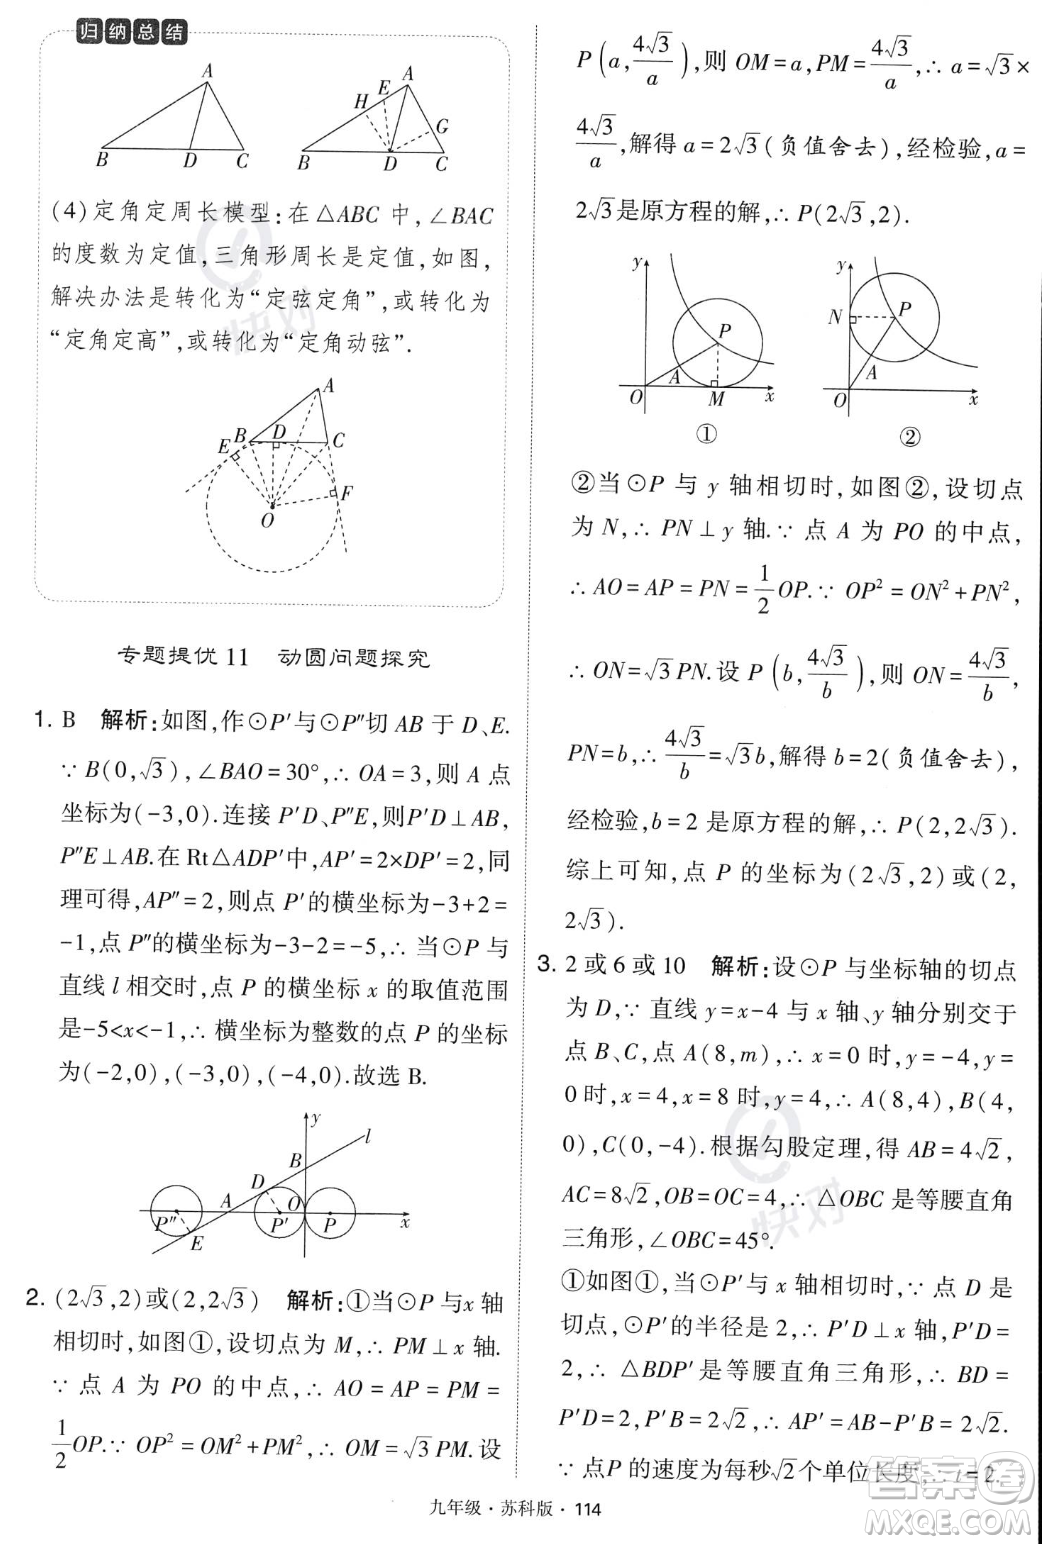 归纳总结
A
B D C
A
E
H
G
B D C
(4)定角定周长模型:在△ABC 中,∠BAC
的度数为定值,三角形周长是定值,如图,
解决办法是转化为“定弦定角”,或转化为
“定角定高”,或转化为“定角动弦”.
A
B D C
E
F
O
专题提优 11 动圆问题探究
1. B 解析:如图,作⊙P′与⊙P″切 AB 于 D、E.
∵B(0,√3),∠BAO=30°,∴OA=3,则 A 点
坐标为(-3,0).连接 P′D、P″E,则P′D⊥AB,
P″E⊥AB.在 Rt△ADP′中,AP′=2×DP′=2,同
理可得,AP″=2,则点 P′的横坐标为-3+2=
-1,点 P″的横坐标为-3-2=-5,∴当⊙P 与
直线 l 相交时,点 P 的横坐标 x 的取值范围
是-5<x<-1,∴横坐标为整数的点 P 的坐标
为(-2,0),(-3,0),(-4,0).故选 B.
y
l
B
D
A O
P″ P′ P x
E
2. (2√3,2)或(2,2√3) 解析:①当⊙P 与x 轴
相切时,如图①,设切点为 M,∴PM⊥x 轴.
∵点 A 为 PO 的中点,∴AO=AP=PM=
1/2 OP.∵OP²=OM²+PM²,∴OM=√3PM.设
P(a,4√3/a),则 OM=a,PM=4√3/a,∴a=√3×
4√3/a,解得 a=2√3(负值舍去),经检验,a=
2√3是原方程的解,∴P(2√3,2).
y
P
A
O M x
①
y
N P
A
O x
②
②当⊙P 与 y 轴相切时,如图②,设切点
为 N,∴PN⊥y 轴.∵点 A 为 PO 的中点,
∴AO=AP=PN=1/2 OP.∵OP²=ON²+PN²,
∴ON=√3PN.设 P(b,4√3/b),则 ON=4√3/b,
PN=b,∴4√3/b=√3b,解得 b=2(负值舍去),
经检验,b=2 是原方程的解,∴P(2,2√3).
综上可知,点 P 的坐标为(2√3,2)或(2,
2√3).
3. 2 或 6 或 10 解析:设⊙P 与坐标轴的切点
为 D,∵直线 y=x-4 与 x 轴、y 轴分别交于
点 B、C,点 A(8,m),∴x=0 时,y=-4,y=
0 时,x=4,x=8 时,y=4,∴A(8,4),B(4,
0),C(0,-4).根据勾股定理,得 AB=4√2,
AC=8√2,OB=OC=4,∴△OBC 是等腰直角
三角形,∠OBC=45°.
①如图①,当⊙P′与 x 轴相切时,∵点 D 是
切点,⊙P′的半径是 2,∴P′D⊥x 轴,P′D=
2,∴△BDP′是等腰直角三角形,∴BD=
P′D=2,P′B=2√2,∴AP′=AB-P′B=2√2.
∵点P 的速度为每秒√2个单位长度,∴t=2.
九年级·苏科版·114
快对
快对
答案圈
MXQE.COM